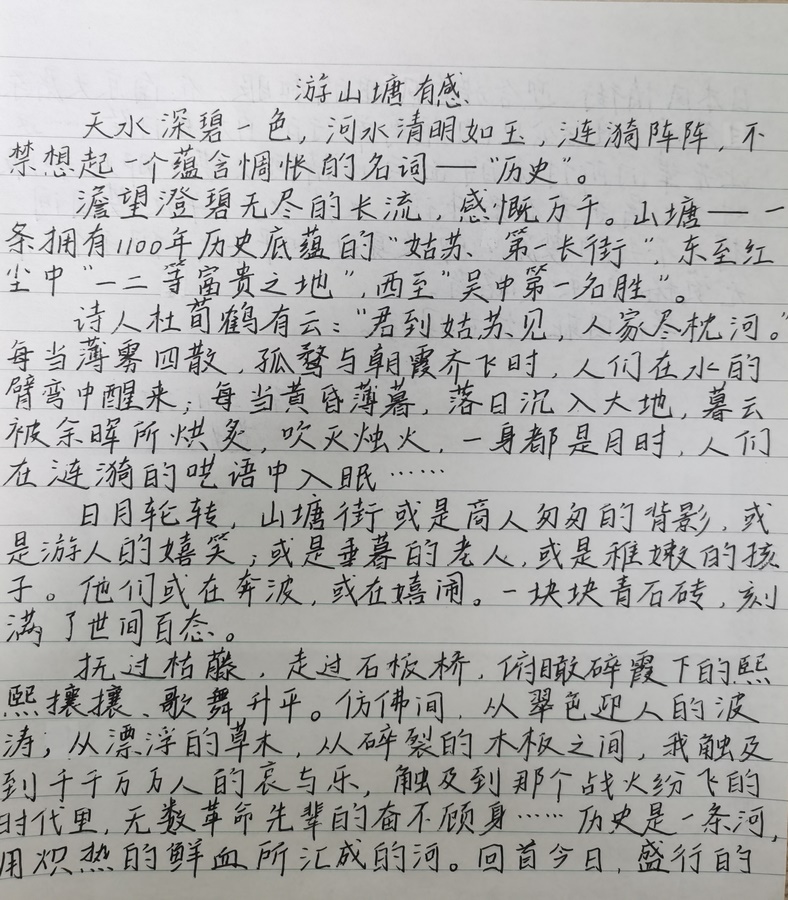 游山塘有感
天水深碧一色，河水清明如玉，涟漪阵阵，不
禁想起一个蕴含惆怅的名词——“历史”。
澹望澄碧无尽的长流，感慨万千。山塘——一
条拥有1100年历史底蕴的“姑苏、第一长街”，东至红
尘中“一二等富贵之地”，西至“吴中第一名胜”。
诗人杜荀鹤有云：“君到姑苏见，人家尽枕河。”
每当薄雾四散，孤鹜与朝霞齐飞时，人们在水的
臂弯中醒来；每当黄昏薄暮，落日沉入大地，暮云
被余晖所烘炙，吹灭烛火，一身都是月时，人们
在涟漪的呓语中入眠……
日月轮转，山塘街或是商人匆匆的背影，或
是游人的嬉笑；或是垂暮的老人，或是稚嫩的孩
子。他们或在奔波，或在嬉闹。一块块青石砖，刻
满了世间百态。
抚过枯藤，走过石板桥，俯瞰碎霞下的熙
熙攘攘、歌舞升平。仿佛间，从翠色迎人的波
涛，从漂浮的草木，从碎裂的木板之间，我触及
到千千万万人的哀与乐，触及到那个战火纷飞的
时代里，无数革命先辈的奋不顾身……历史是一条河，
用炽热的鲜血所汇成的河。回首今日，盛行的